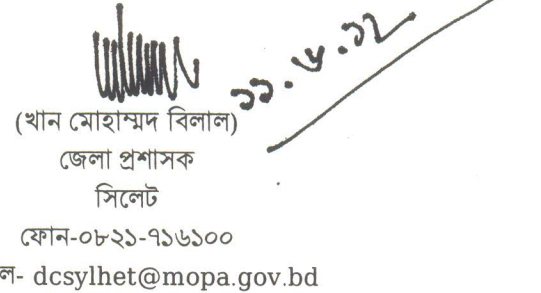 ১১.৬.১২
(খান মোহাম্মদ বিলাল)
জেলা প্রশাসক
সিলেট
ফোন-০৮২১-৭১৬১০০
ল- dcsylhet@mopa.gov.bd